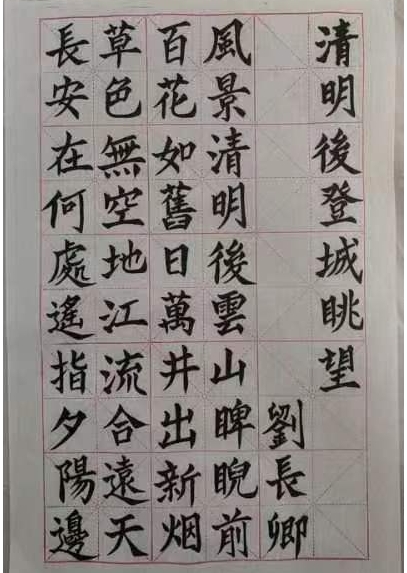 清明後登城眺望
劉長卿
風景清明後雲山睥睨前
百花如舊日萬井出新烟
草色無空地江流合遠天
長安在何處遙指夕陽邊